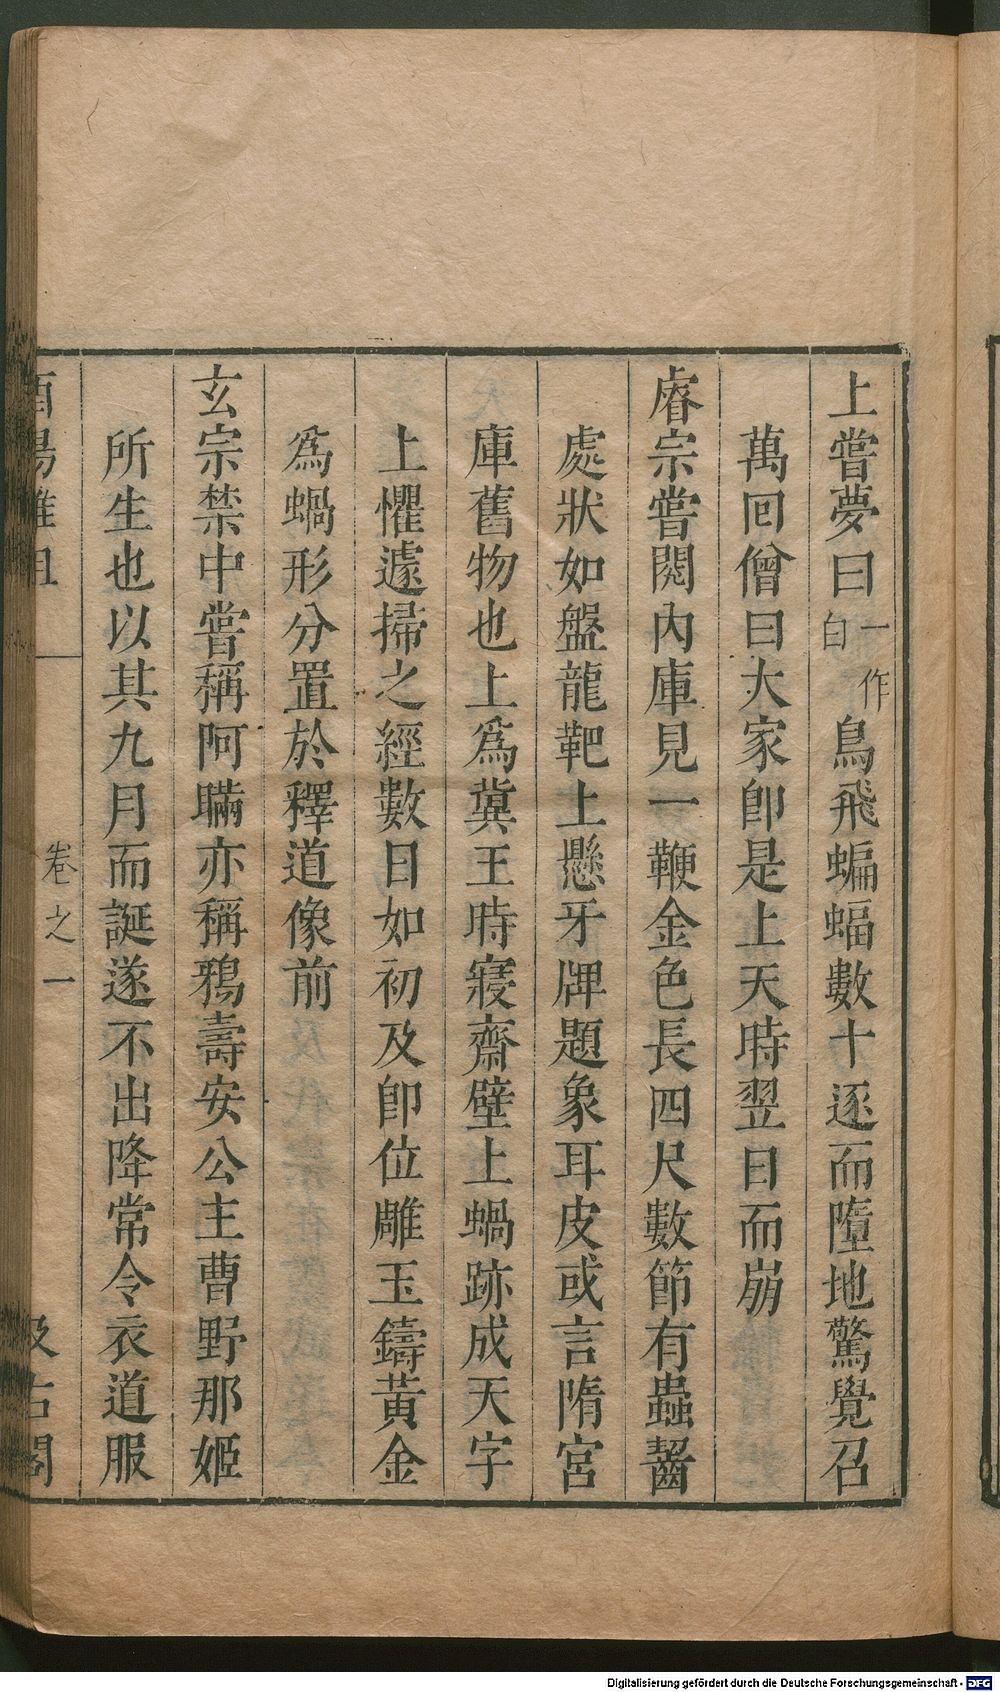 上嘗夢曰一作白鳥飛蝙蝠數十逐而墮地驚覺召
萬回僧曰大家卽是上天時翌日而崩
睿宗嘗閱內庫見一鞭金色長四尺數節有蟲齧
處狀如盤龍靶上懸牙牌題象耳皮或言隋宮
庫舊物也上爲冀王時寢齋壁上蝸跡成天字
上懼遽掃之經數日如初及卽位雕玉鑄黃金
爲蝸形分置於釋道像前
玄宗禁中嘗稱阿瞞亦稱鴉壽安公主曹野那姬
所生也以其九月而誕遂不出降常令衣道服
酉陽雜俎 卷之一 汲古閣
Digitalisierung gefördert durch die Deutsche Forschungsgemeinschaft - DFG